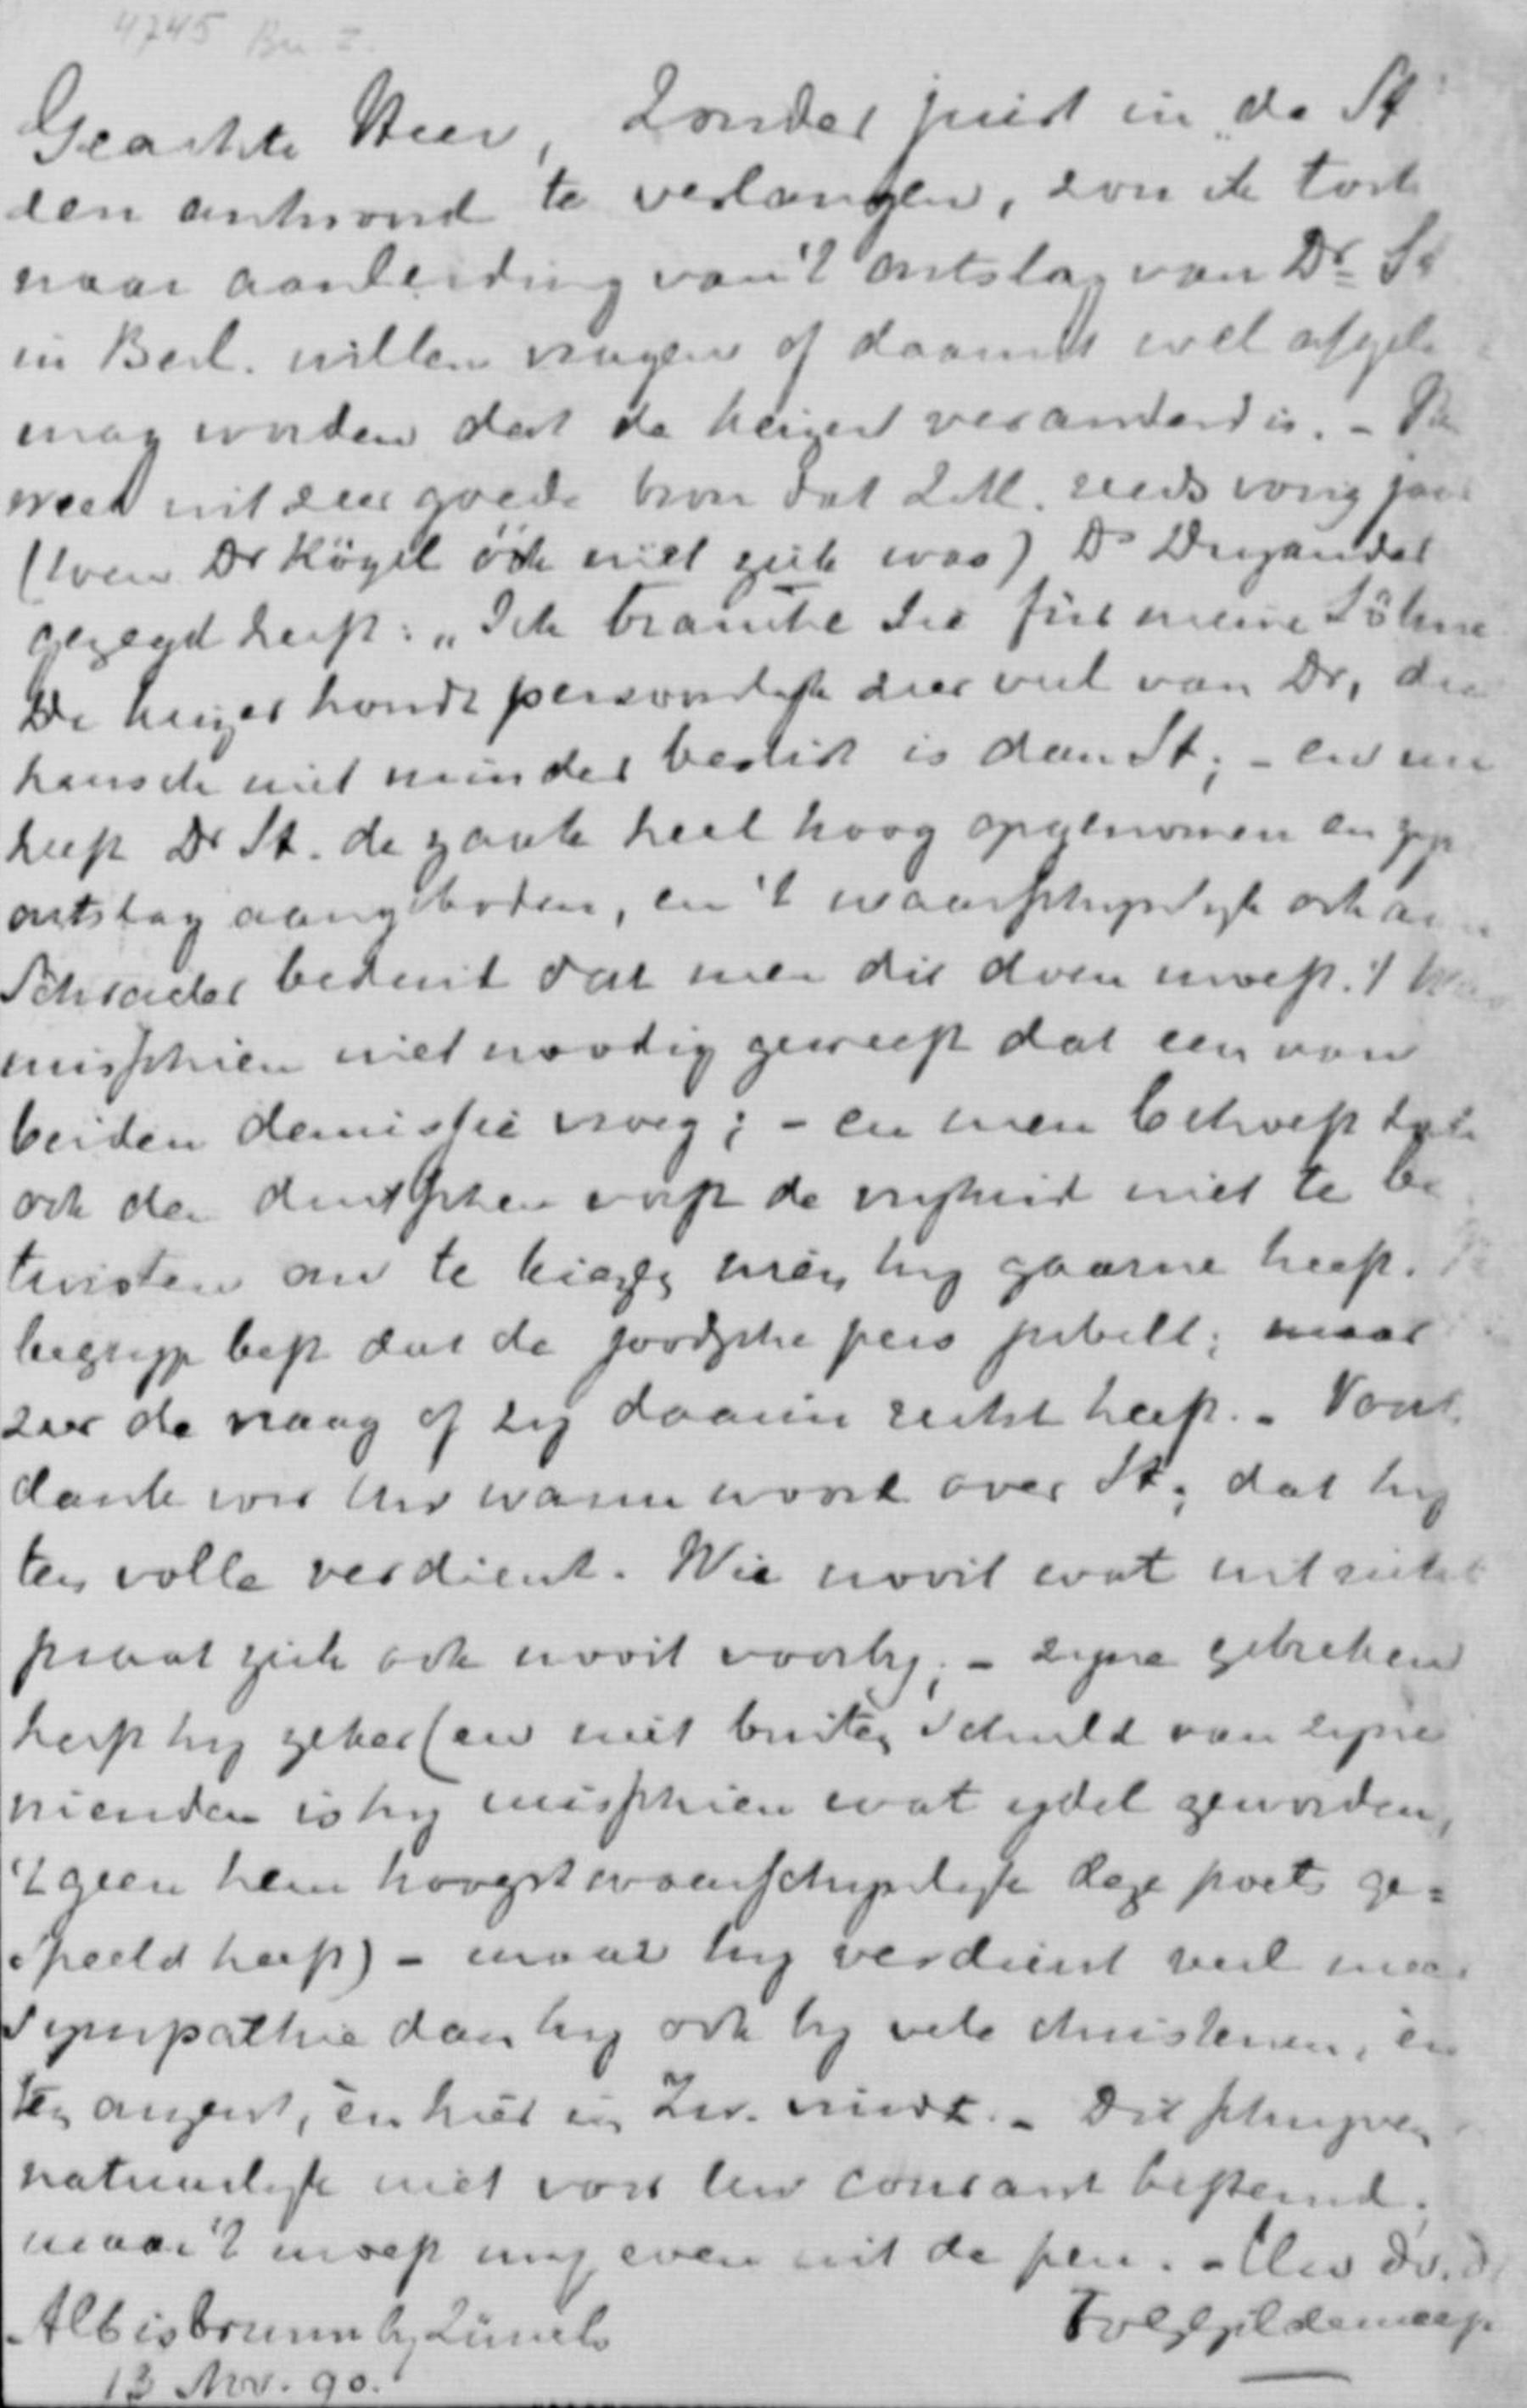 4745 Bu I.
Geachte Heer, Zonder juist in „de St
een antwoord te verlangen, zou ik toch
naar aanleiding van 't ontslag van Dr St
in Berl. willen vragen of daaruit wel afgele
mag worden dat de keizer veranderd is. - Ik
weet uit zeer goede bron dat Z.M. reeds vorig jaar
(toen Dr Kögel óók niet ziek was) Ds Dryander
gezegd heeft: „Ich brauche Sie für meine Söhne
De keizer houdt persoonlijk zeer veel van Dr, die
heusch niet minder beslist is dan St; - en nu
heeft Dr St. de zaak heel hoog opgenomen en zijn
ontslag aangeboden, en 't waarschijnlijk ook aan
Schrader beduid dat men dit doen moest. 't Was
misschien niet noodig geweest dat een van
beiden demissie vroeg; - en men behoeft toch
ook den duitschen vorst de vrijheid niet te be
twisten om te kiezen wien hij gaarne heeft. Ik
begrijp best dat de joodsche pers jubelt; maar
zeer de vraag of zij daarin recht heeft. - Voorts
dank voor Uw warm woord over St; dat hij
ten volle verdient. Wie nooit wat uitricht
praat zich ook nooit voorbij; - zijne gebreken
heeft hij zeker (en niet buiten schuld van zijne
vrienden is hij misschien wat ijdel geworden,
't geen hem hoogstwaarschijnlijk deze poets ge=
speeld heeft) - maar hij verdient veel meer
sympathie dan hij ook bij vele christenen, èn
ten onzent, èn hier in Zw. vindt. - Dit schrijven
natuurlijk niet voor Uw courant bestemd.
maar 't moest mij even uit de pen. - Uw dv. d
Albisbrunn bij Zürich
13 Nov. 90.